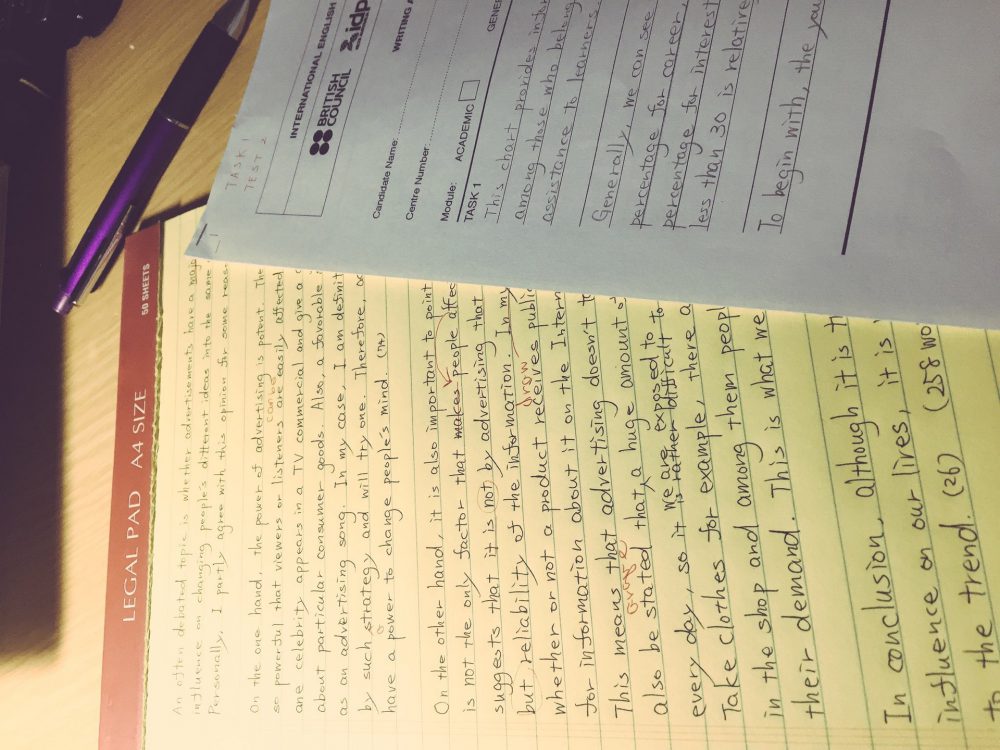 LEGAL PAD A4 SIZE
50 SHEETS
An often debated topic is whether advertisements have a
influence on changing people's different ideas into the same
Personally, I partly agree with this opinion for some
On the one hand, the power of advertising is potent. The
so powerful that viewers or listeners are easily affected
can be
one celebrity appears in a TV commercial and give a
about particular consumer goods. Also, a favorable
as an advertising song. In my case, I am
by such strategy and will try one. Therefore,
have a power to change people's mind. (74)
On the other hand, it is also important to point
is not the only factor that makes people
suggests that it is not by advertising that
but reliability of the information. In my
whether or not a product receives
for information about it on the
This means that advertising doesn't
also be stated that a huge amount
we are exposed to
every day, so it is rather difficult to
Take clothes for example, there a
in the shop and among them
their demand. This is what we
In conclusion, although it is
influence on our lives, it is
to the trend. (26) (258
TASK 1
TEST 2
INTERNATIONAL ENGLISH
BRITISH COUNCIL
idp
WRITING
Candidate Name:
Centre Number:
Module: ACADEMIC
TASK 1
This chart provides
among those who
assistance to learners.
Generally, we can see
percentage for career,
percentage for interest
less than 30 is
To begin with, the